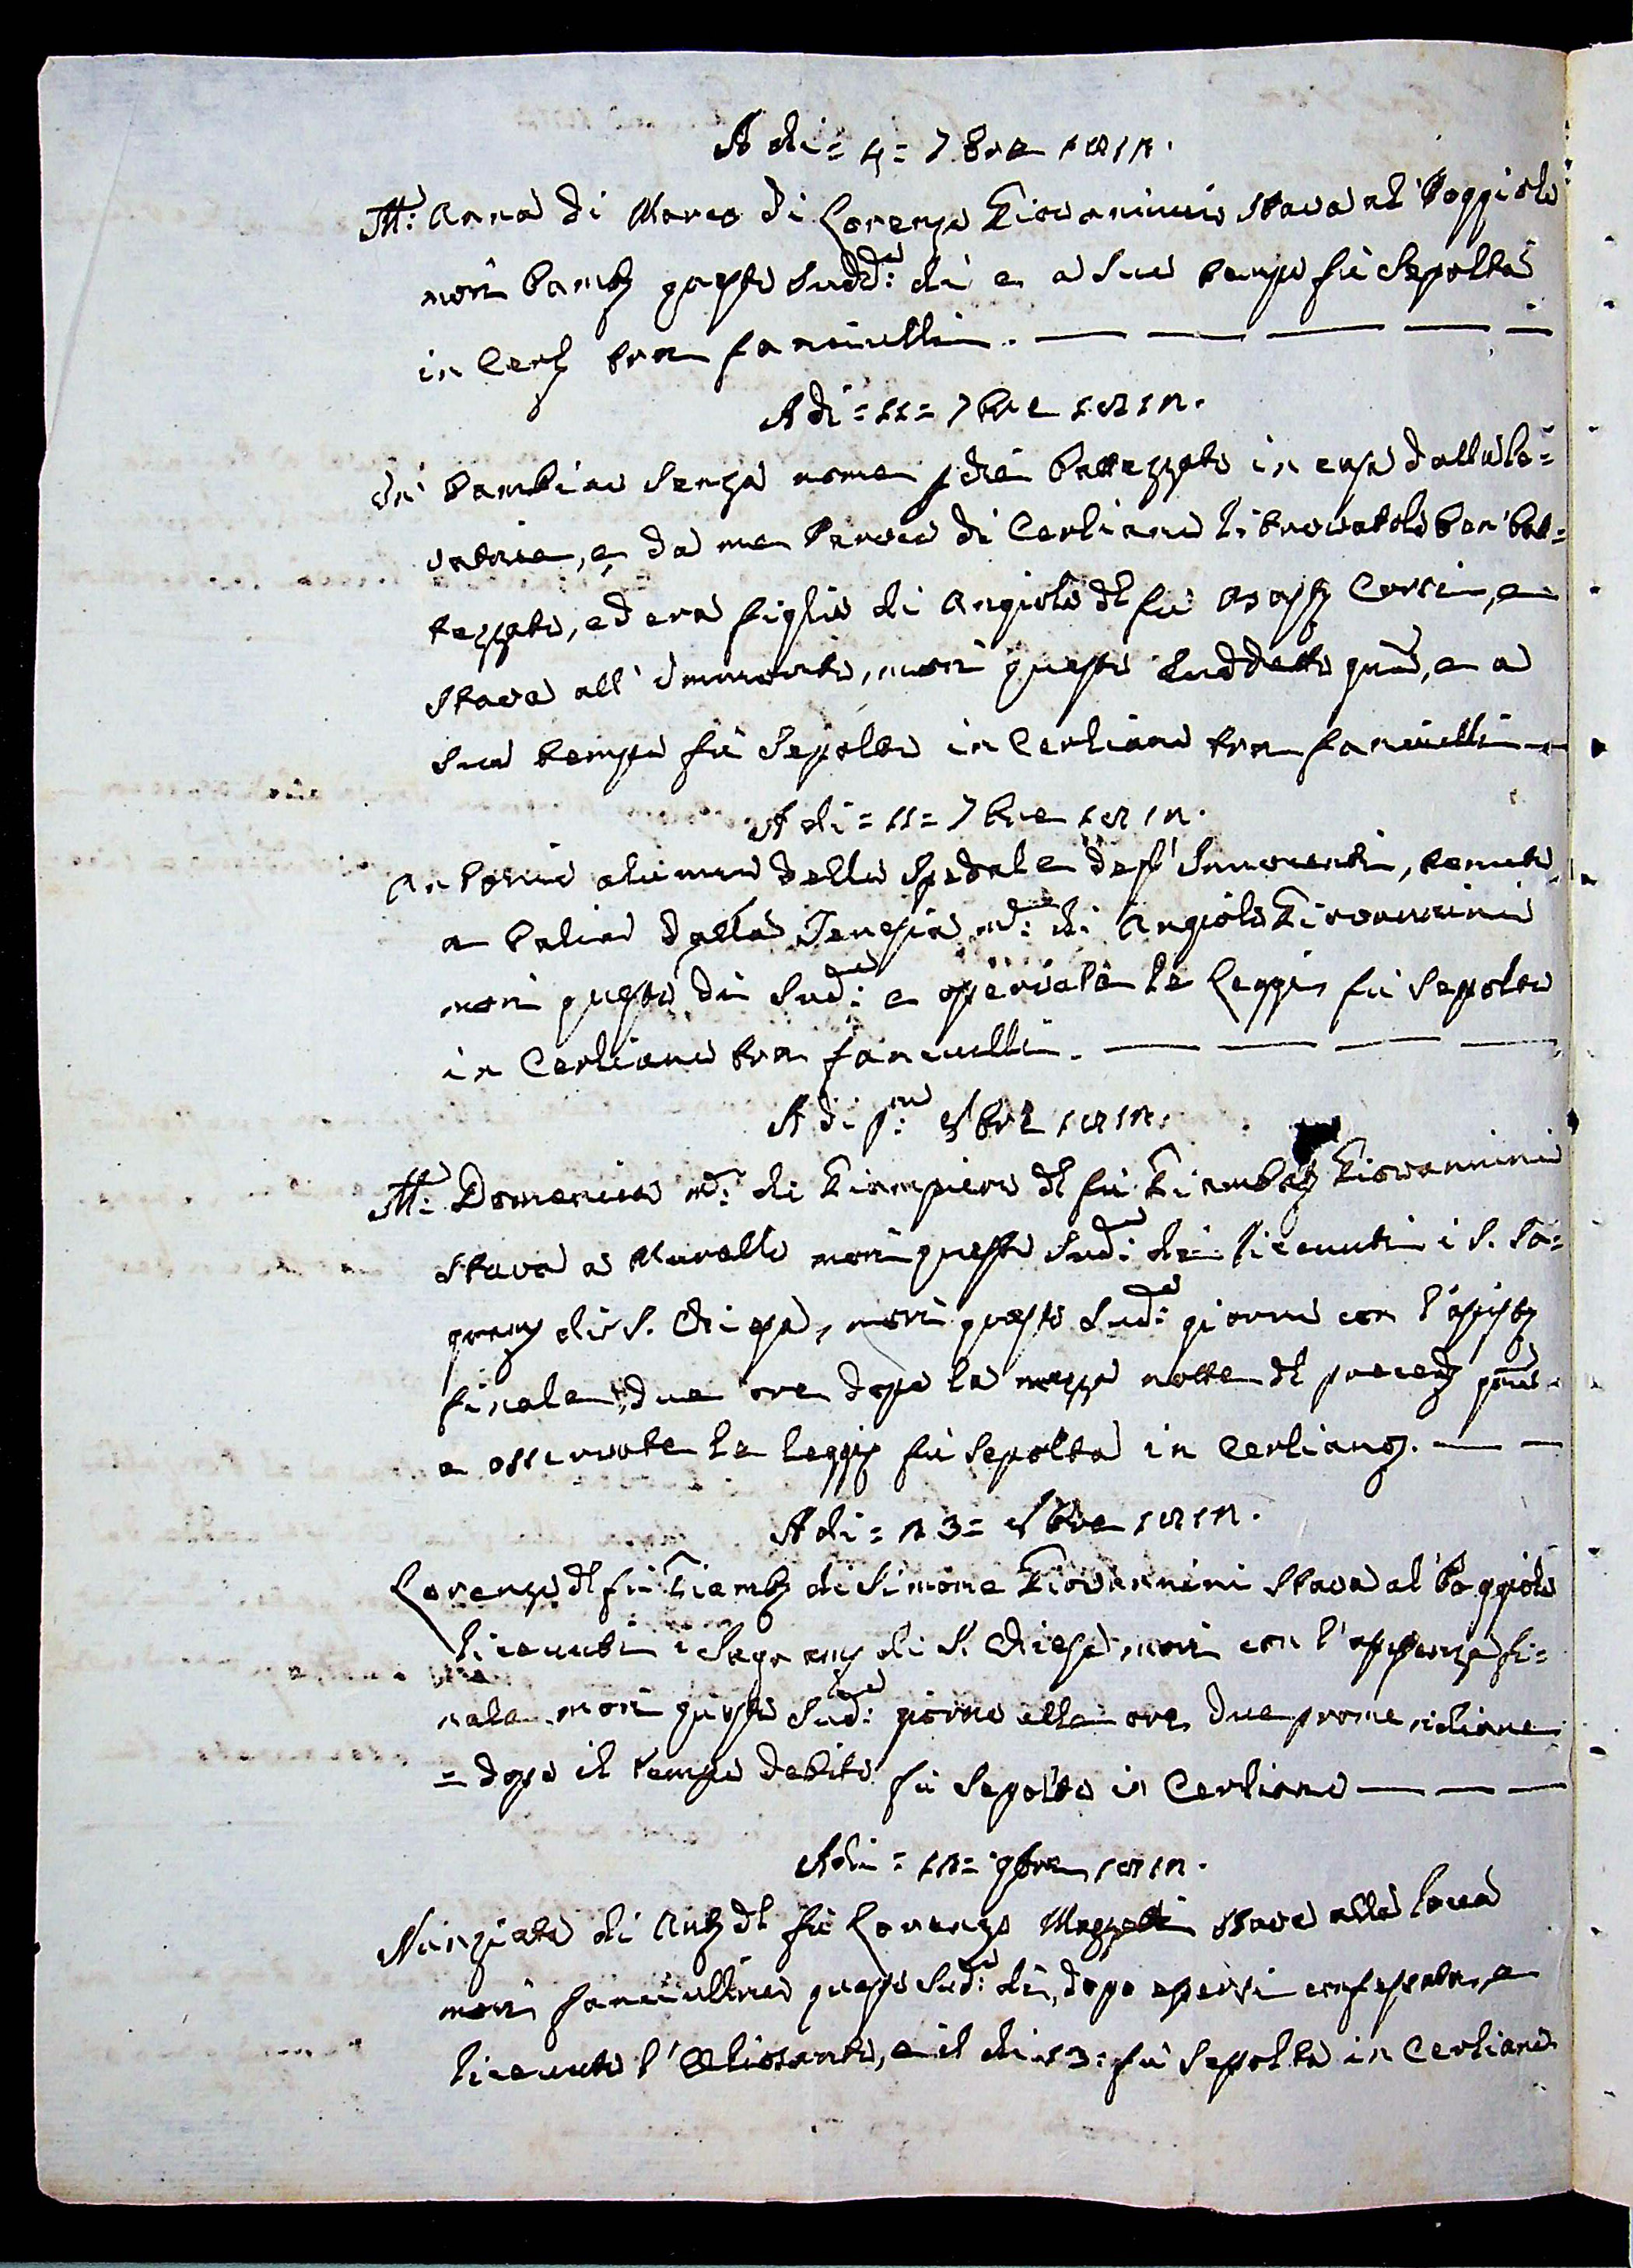 A di = 4 = 7bre 1812.
M: Anna di Marco di Lorenzo Giovannini stava al Poggiolo
morì bamb: questo sudd:o dì e a suo tempo fù sepolta
in Cerl: tra fanciulli.
A di = 11 = 7bre 1812.
Un bambino senza nome p che battezzato in casa dalla le=
vatrice, e da me Paroco di Cerliano ritrovatolo ben bat=
tezzato, ed era figlio di Angiolo dl fù Corsini, e
stava all', morì questo suddetto gno, e a
suo tempo fù sepolto in Cerliano tra fanciulli
A di = 11 = 7bre 1812.
Antonio alunno dello Spedale degl' Innocenti, tenuto
a balia dalla Teresia m: di Angiolo Giovannini
morì questo dì sud:o e osservate le leggi fù sepolto
in Cerliano tra fanciulli.
A di p:mo 8bre 1812.
M: Domenica m: di Giampiero dl fù Giamb: Giovannini
stava a Morello morì questo sud:o dì ricevuti i S. Sa=
gram: di S. Chiesa, morì questo sud:o giorno con l'assist:
finale, due ore dopo la mezza notte dl preced: gno
e osservate le leggi fù sepolta in Cerliano.
A di = 23 = 8bre 1812.
Lorenzo dl fù Giamb: di Simone Giovannini stava al Poggiolo
ricevuti i Sagram: di S. Chiesa, morì con l'assistenza fi=
nale morì questo sud:o giorno alle ore due
= dopo il tempo debito fù sepolto in Cerliano
A di = 12 = 9bre 1812.
Nunziata di Ant: dl fù Lorenzo Mazzetti stava alla
morì fanciullina questo sud:o dì, dopo essersi confessata, e
ricevuto l'Olio santo, e il di 13: fù sepolta in Cerliano